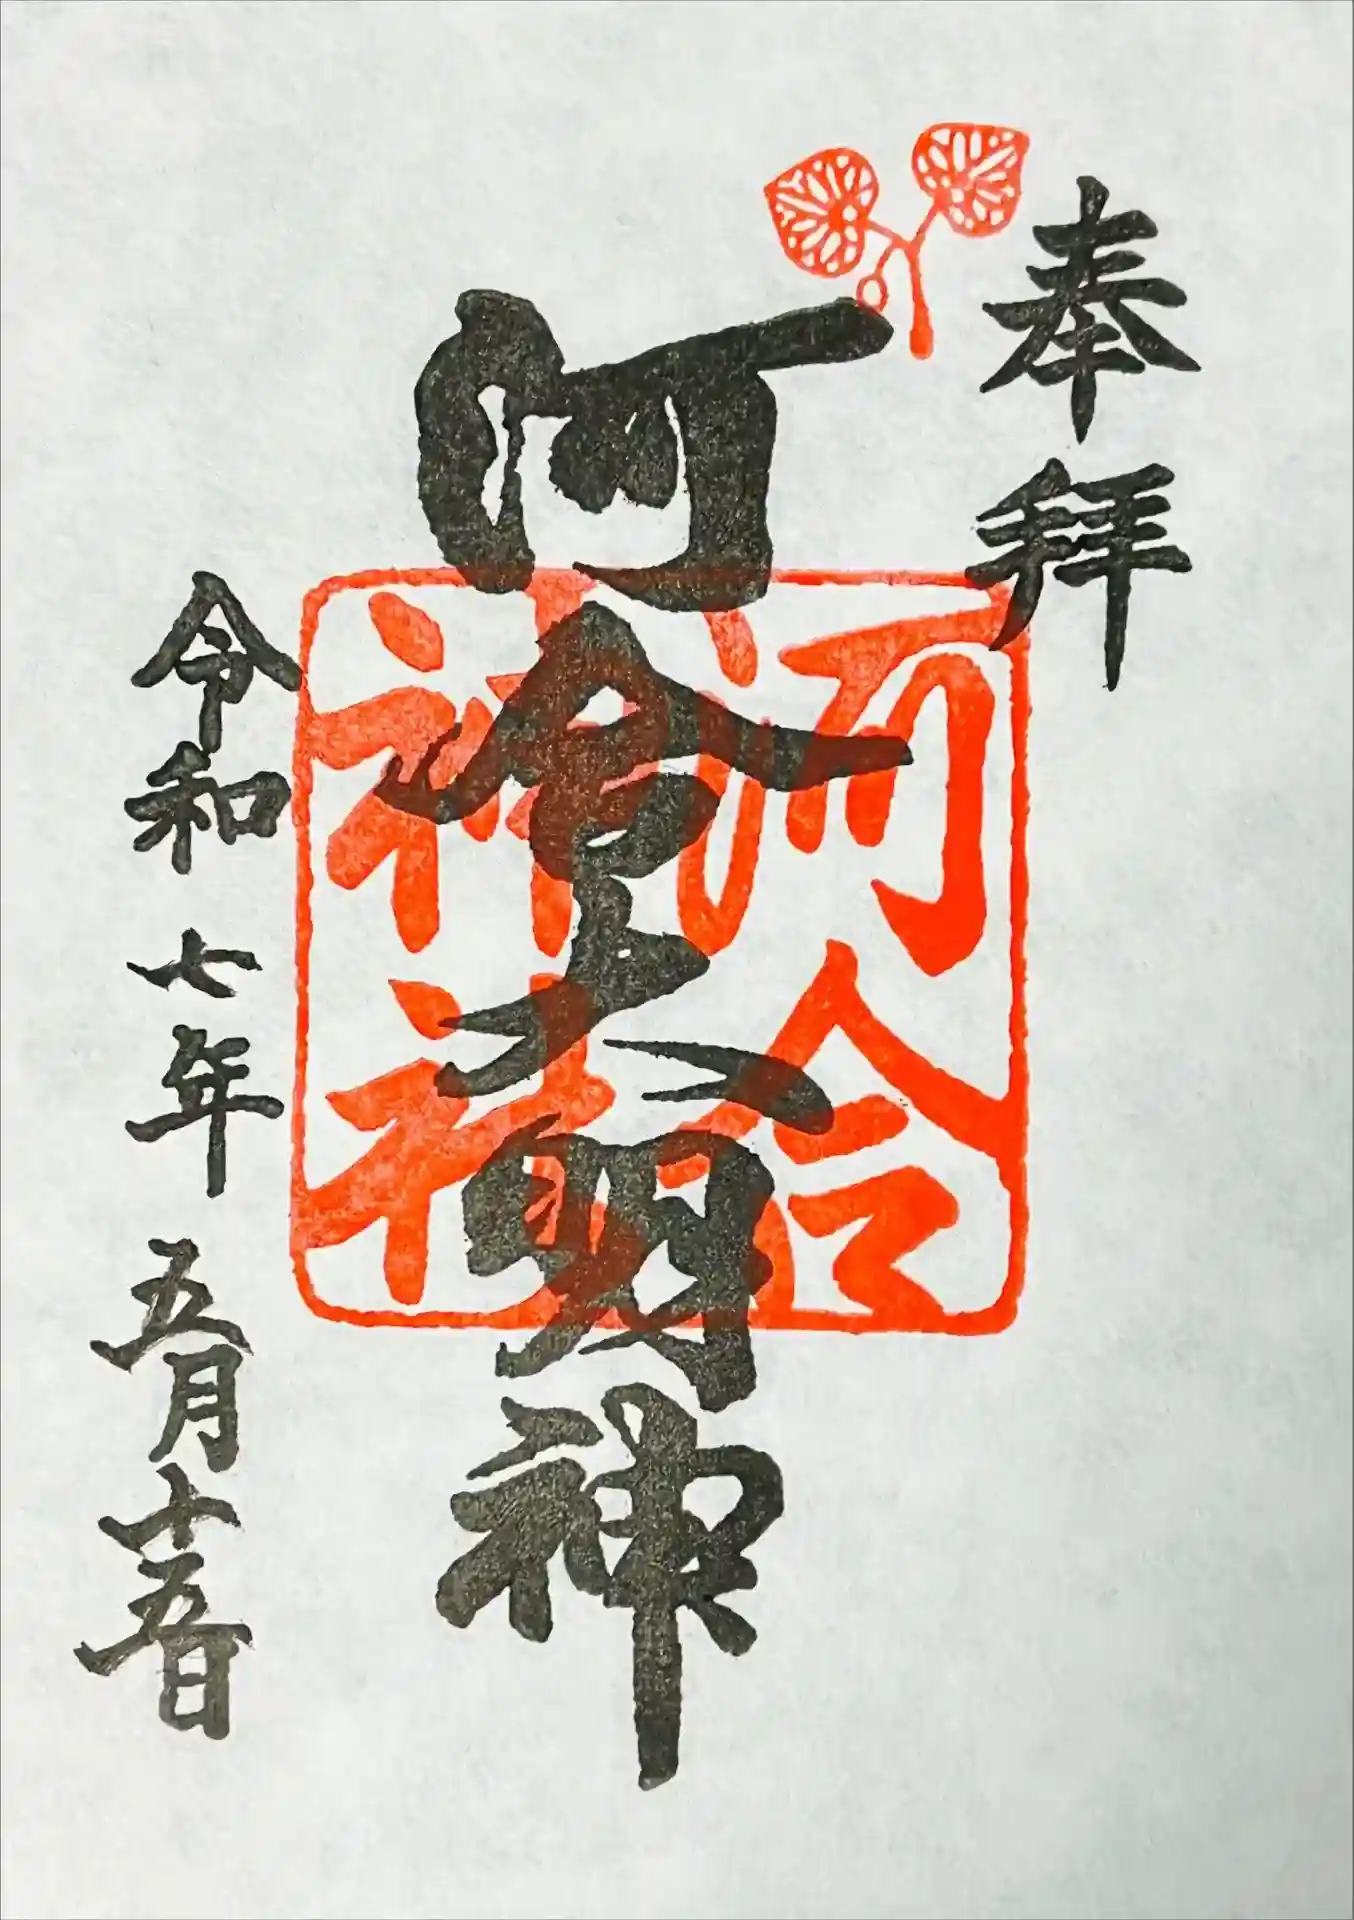 奉拝
河合大明神
令和七年五月十五日
河合
神社